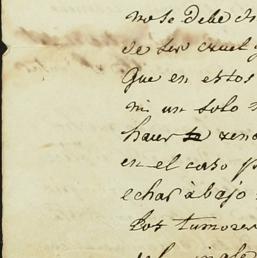 no se debe
de ser cruel
que en estos
ni un solo
haver
en el caso
echar à bajo
Los tumores